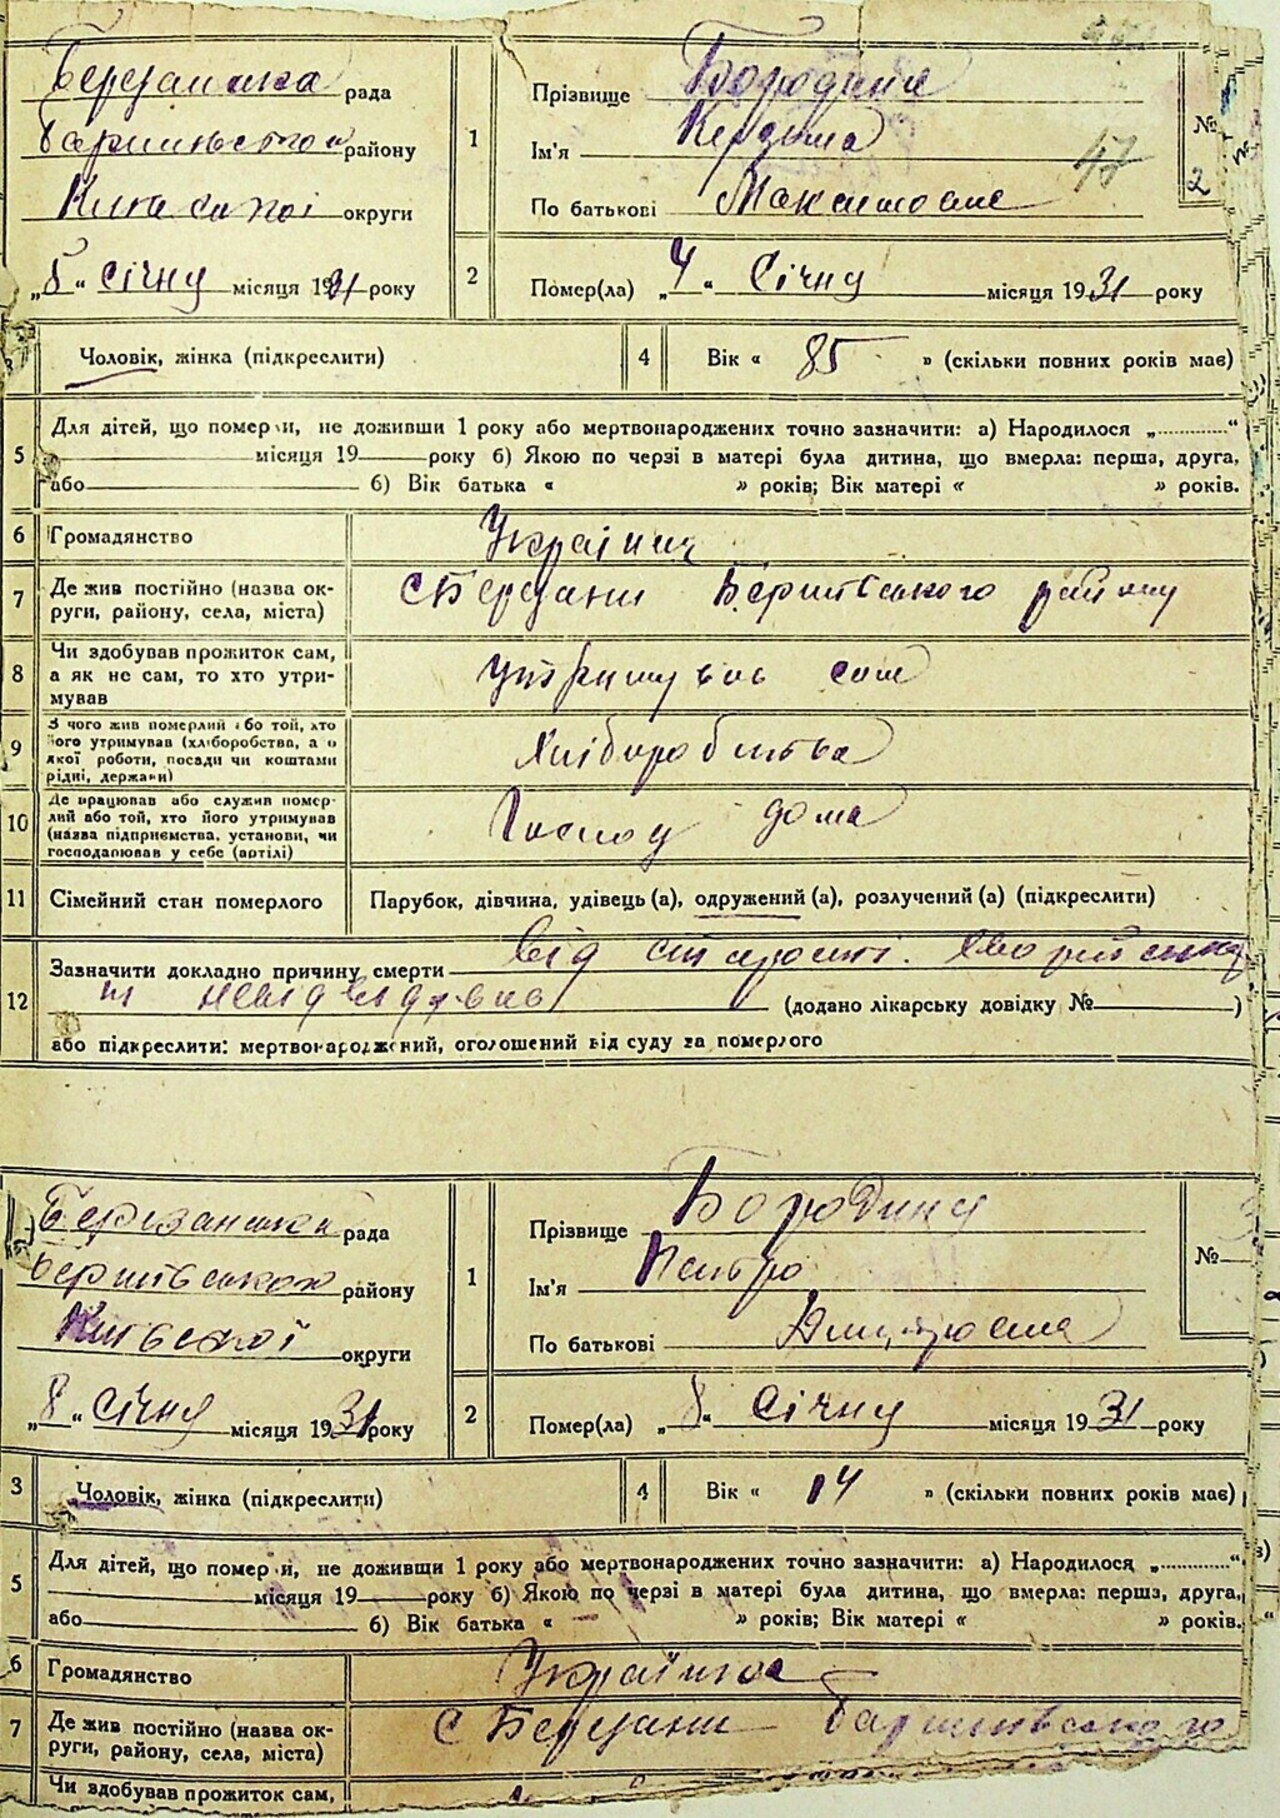 Березанська рада
району
округи
„8“ Січну місяця 1931 року
1
Прізвище Бородина
Ім'я
По батькові Максимович
47
№ 2
2
Помер(ла) „4“ Січну місяця 1931 року
3
Чоловік, жінка (підкреслити)
4
Вік « 85 » (скільки повних років має)
5
Для дітей, що померли, не доживши 1 року або мертвонароджених точно зазначити: а) Народилося „............“
місяця 19 року б) Якою по черзі в матері була дитина, що вмерла: перша, друга,
або б) Вік батька « » років; Вік матері « » років.
6
Громадянство Українец
7
Де жив постійно (назва ок-
руги, району, села, міста)
с Березани району
8
Чи здобував прожиток сам,
а як не сам, то хто утри-
мував
утримував сам
9
З чого жив померлий або той, хто
його утримував (хліборобства, а о
якої роботи, посади чи коштами
рідні, держави)
Хліборобства
10
Де працював або служив помер-
лий або той, хто його утримував
(назва підприємства, установи, чи
господарював у себе (артілі)
Господ дома
11
Сімейний стан померлого
Парубок, дівчина, удівець (а), одружений (а), розлучений (а) (підкреслити)
12
Зазначити докладно причину смерти від старости.
(додано лікарську довідку № )
або підкреслити: мертвонароджений, оголошений від суду за померлого
Березанська рада
району
Київської округи
„8“ Січну місяця 1931 року
1
Прізвище Бородину
Ім'я Петро
По батькові
№
2
Помер(ла) „8“ Січну місяця 1931 року
3
Чоловік, жінка (підкреслити)
4
Вік « 14 » (скільки повних років має)
5
Для дітей, що померли, не доживши 1 року або мертвонароджених точно зазначити: а) Народилося „............“
місяця 19 року б) Якою по черзі в матері була дитина, що вмерла: перша, друга,
або б) Вік батька « » років; Вік матері « » років.
6
Громадянство
7
Де жив постійно (назва ок-
руги, району, села, міста)
с Березани
Чи здобував прожиток сам,